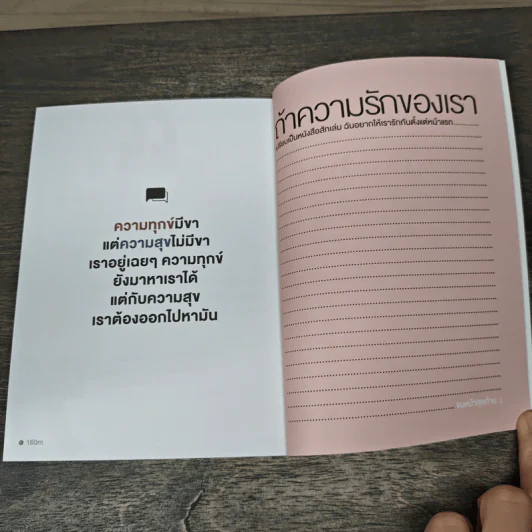 ความทุกข์มีขา
แต่ความสุขไม่มีขา
เราอยู่เฉยๆ ความทุกข์
ยังมาหาเราได้
แต่กับความสุข
เราต้องออกไปหามัน
160m
ถ้าความรักของเรา
เปรียบเป็นหนังสือสักเล่ม ฉันอยากให้เรารักกันตั้งแต่หน้าแรก
จนหน้าสุดท้าย